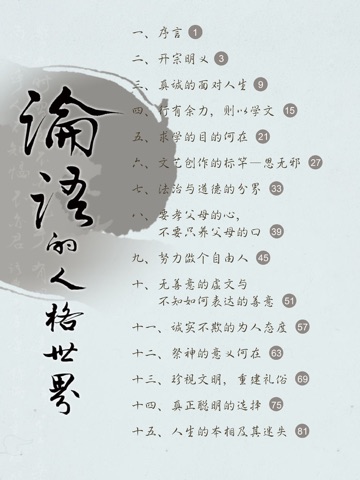 論語的人格世界
一、序言 1
二、开宗明义 3
三、真诚的面对人生 9
四、行有余力，则以学文 15
五、求学的目的何在 21
六、文艺创作的标竿—思无邪 27
七、法治与道德的分界 33
八、要孝父母的心，
不要只养父母的口 39
九、努力做个自由人 45
十、无善意的虚文与
不知如何表达的善意 51
十一、诚实不欺的为人态度 57
十二、祭神的意义何在 63
十三、珍视文明，重建礼俗 69
十四、真正聪明的选择 75
十五、人生的本相及其迷失 81